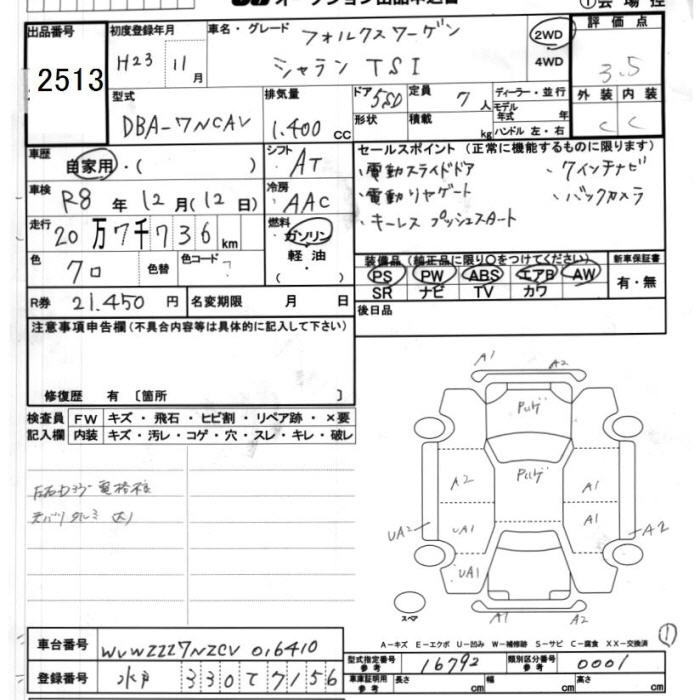 出品番号
2513
初度登録年月
H23 11月
車名・グレード
フォルクスワーゲン
シャラン TSI
2WD
4WD
評価点
3.5
外装 内装
C C
型式
DBA-7NCAV
排気量
1.400 cc
ドア 5SD
形状
定員 7人
積載 kg
ディーラー・並行
モデル年式 年
ハンドル 左・右
車歴
自家用・( )
シフト AT
車検
R8年12月(12日)
冷房 AAC
走行
20万7千736km
燃料
ガソリン
軽油
( )
色
クロ
色替
色コード ?
R券 21.450円
名変期限 月 日
セールスポイント (正常に機能するものに限ります)
・電動スライドドア ・7インチナビ
・電動リヤゲート ・バックカメラ
・キーレス プッシュスタート
装備品 (純正品に限り○をつけてください)
PS PW ABS エアB AW
SR ナビ TV カワ
新車保証書
有・無
後日品
注意事項申告欄(不具合内容等は具体的に記入して下さい)
修復歴 有 〔箇所 〕
検査員記入欄
FW キズ・飛石・ヒビ割・リペア跡・×要
内装 キズ・汚レ・コゲ・穴・スレ・キレ・破レ
A1 A2
A2 A1
UA2 UA1 A1 A2
UA1
A1 A2
スペア
①
A-キズ E-エクボ U-凹み W-補修跡 S-サビ C-腐食 XX-交換済
車台番号 WVWZZZ7NZCV016410
登録番号 水戸 330 て 7156
型式指定番号 参考 16792
類別区分番号 参考 0001
車庫証明用 参考 長さ cm 幅 cm 高さ cm